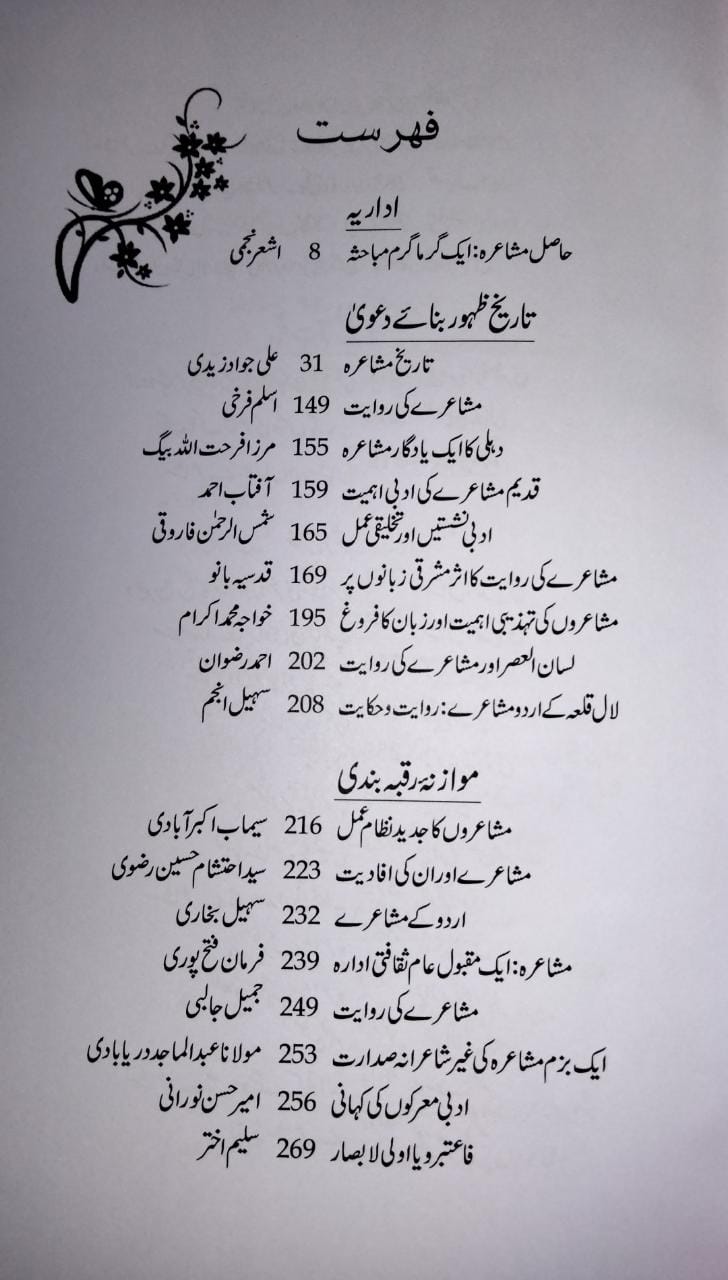 فہرست
اداریہ
حاصل مشاعرہ: ایک گرما گرم مباحثہ 8 اشعر نجمی
تاریخ ظہور بنائے دعویٰ
تاریخ مشاعرہ 31 علی جواد زیدی
مشاعرے کی روایت 149 اسلم فرخی
دہلی کا ایک یادگار مشاعرہ 155 مرزا فرحت اللہ بیگ
قدیم مشاعرے کی ادبی اہمیت 159 آفتاب احمد
ادبی نشستیں اور تخلیقی عمل 165 شمس الرحمٰن فاروقی
مشاعرے کی روایت کا اثر مشرقی زبانوں پر 169 قدسیہ بانو
مشاعروں کی تہذیبی اہمیت اور زبان کا فروغ 195 خواجہ محمد اکرام
لسان العصر اور مشاعرے کی روایت 202 احمد رضوان
لال قلعہ کے اردو مشاعرے: روایت و حکایت 208 سہیل انجم
موازنۂ رقبہ بندی
مشاعروں کا جدید نظام عمل 216 سیماب اکبر آبادی
مشاعرے اور ان کی افادیت 223 سید احتشام حسین رضوی
اردو کے مشاعرے 232 سہیل بخاری
مشاعرہ: ایک مقبول عام ثقافتی ادارہ 239 فرمان فتح پوری
مشاعرے کی روایت 249 جمیل جالبی
ایک بزم مشاعرہ کی غیر شاعرانہ صدارت 253 مولانا عبدالماجد دریابادی
ادبی معرکوں کی کہانی 256 امیر حسن نورانی
فاعتبرو یا اولی لابصار 269 سلیم اختر